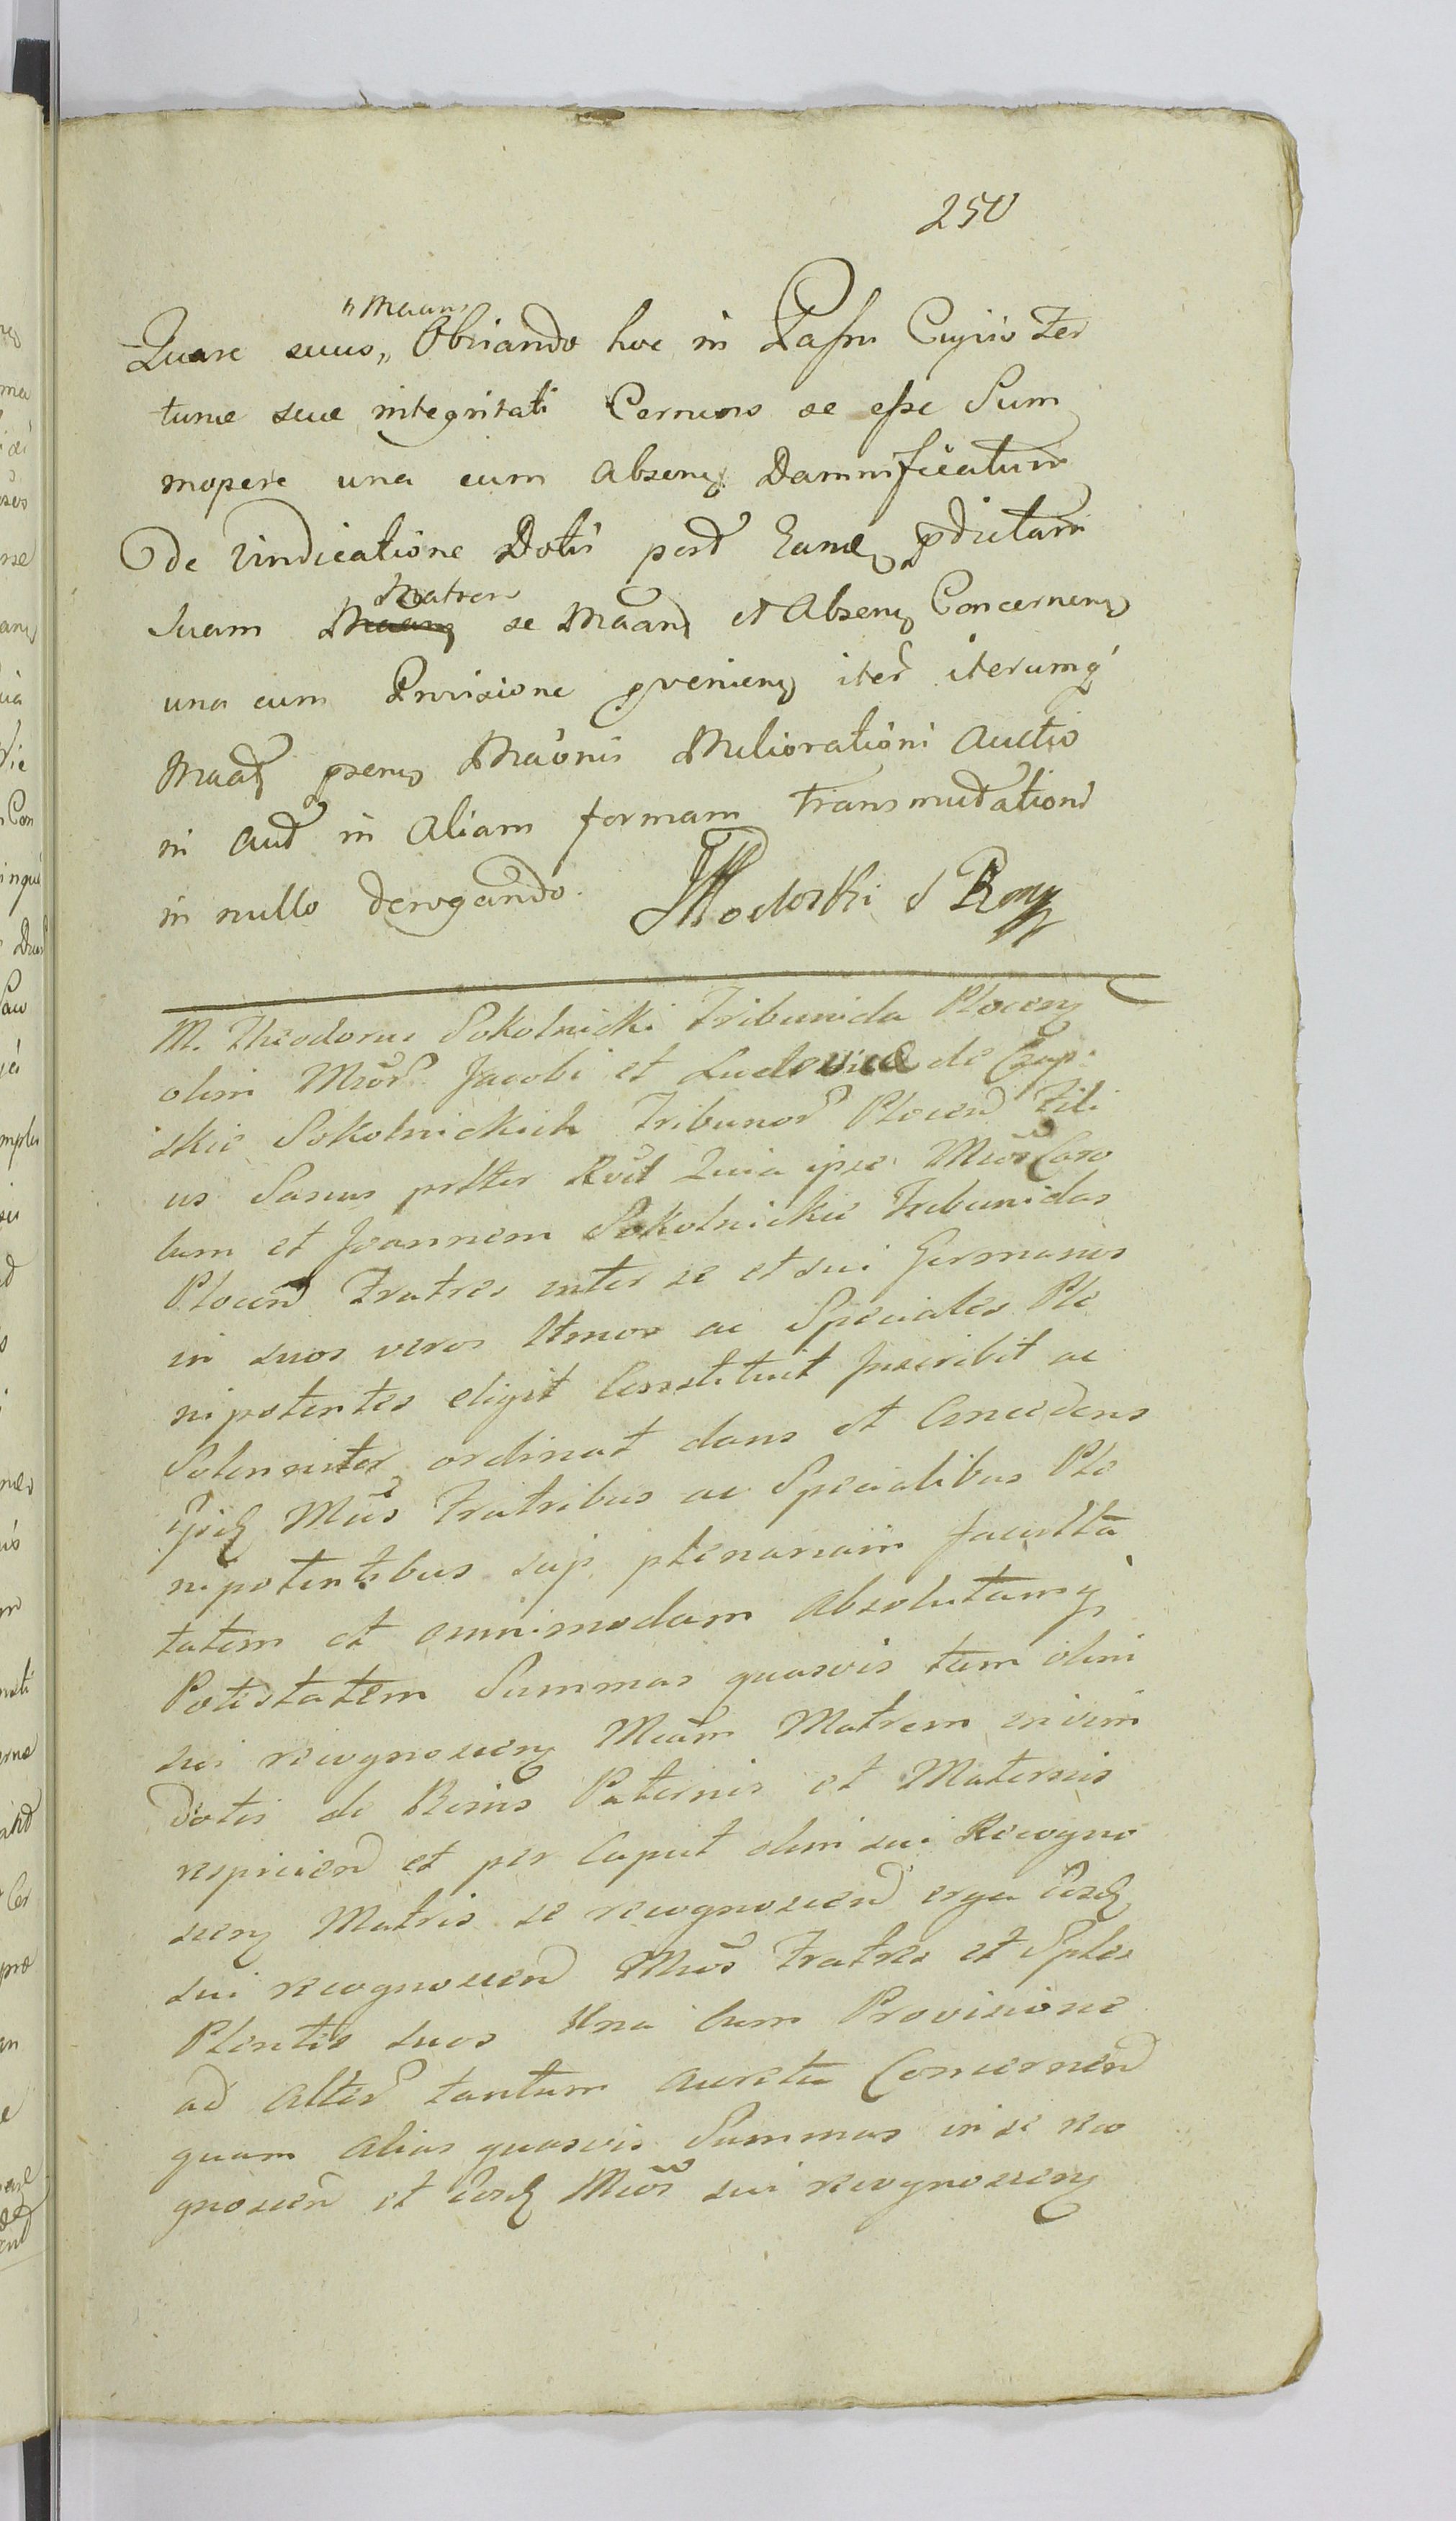 250
"Maans
Quare suus„ Obviando hoc in Passu Cujus For
tunæ suæ integritati Cernens se esse Sum
mopere una cum Absen Damnificatum
De Vindicatione Dotis post Eand pdictam
Matren
Suam Maan se Maand et Absen Concernen
una cum Provisione pvenien iter iterumq
Maad psens Maonis Meliorationi Auctio
ni aut in Aliam formam transmutationi
in nullo derogando. JKodorski S Reg
M. Theodorus Sokolnicki Tribunida Plocen
olim Mcor Jacobi et Ludovicæ de Czap
skie Sokolnickich Tribunor Plocen Fili
us Sanus prtter Rcit Quia ipse Mcos Caro
lum et Joannem Sokolnickie Tribunidas
Plocen Fratres inter se et sui Germanos
in suos veros ltmos ac Speciales Ple
nipotentes eligit Constituit Inscribit ac
Solenniter ordinat dans et Concedens
ijsd Mcis Fratribus ac Specialibus Ple
nipotentibus suis plenariam faculta
tatem et omnimodam Absolutamq
Potestatem Summas quasvis tam olim
sui recognoscen Mcam Matrem in vim
Dotis de Bonis Paternis et Maternis
respicien et per Caput olim sui Recogno
scen Matris se recognoscen erga eosd
sui recognoscen Mcos Fratres et Sples
Plentes suos Una Cum Provisione
ad Alter tantum aucta Concernen
quam Alias quasvis Summas in se reco
gnoscen et eosd Mcos sui recognoscen